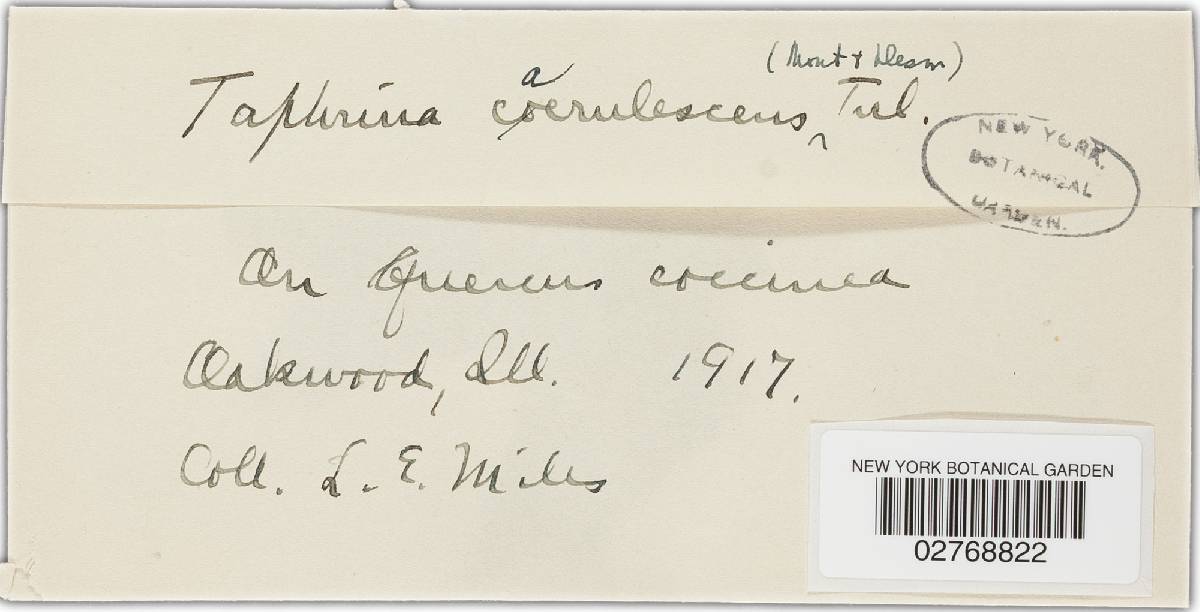 (Mont & Desm)
Taphrina caerulescens, Tul.
NEW YORK
BOTANICAL
GARDEN.
On Quercus coccinea
Oakwood, Ill. 1917.
Coll. L. E. Miles
NEW YORK BOTANICAL GARDEN
02768822